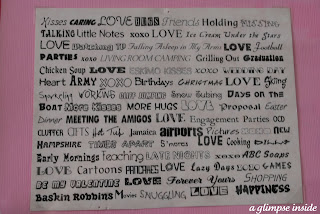 Kisses CARING LOVE Friends Holding KISSING
TALKING Little Notes xoxo LOVE Ice Cream Under the Stars
LOVE Falling Asleep in My Arms LOVE Football
PARTIES xoxo LIVING ROOM CAMPING Grilling Out GRADUATION
Chicken Soup LOVE ESKIMO KISSES WEDDING xoxo
Heart ARMY XOXO Birthdays CHRISTMAS LOVE Skiing
WORKING Snow Tubing DAYS ON THE
BOAT More Kisses MORE HUGS LOVE Proposal Easter
Dinner MEETING THE AMIGOS LOVE Engagement Parties OU
CLIPPER CATS Hot Tub Jamaica airports Pictures xoxo NEW
HAMPSHIRE TIMES APART S'mores LOVE Cooking
Early Mornings Teaching LATE NIGHTS xoxo ABC Soaps
LOVE Cartoons LOVE Lazy Days xoxo GAMES
BE MY VALENTINE LOVE Forever Yours SHOPPING
Baskin Robbins Movies SNUGGLING LOVE HAPPINESS
a glimpse inside